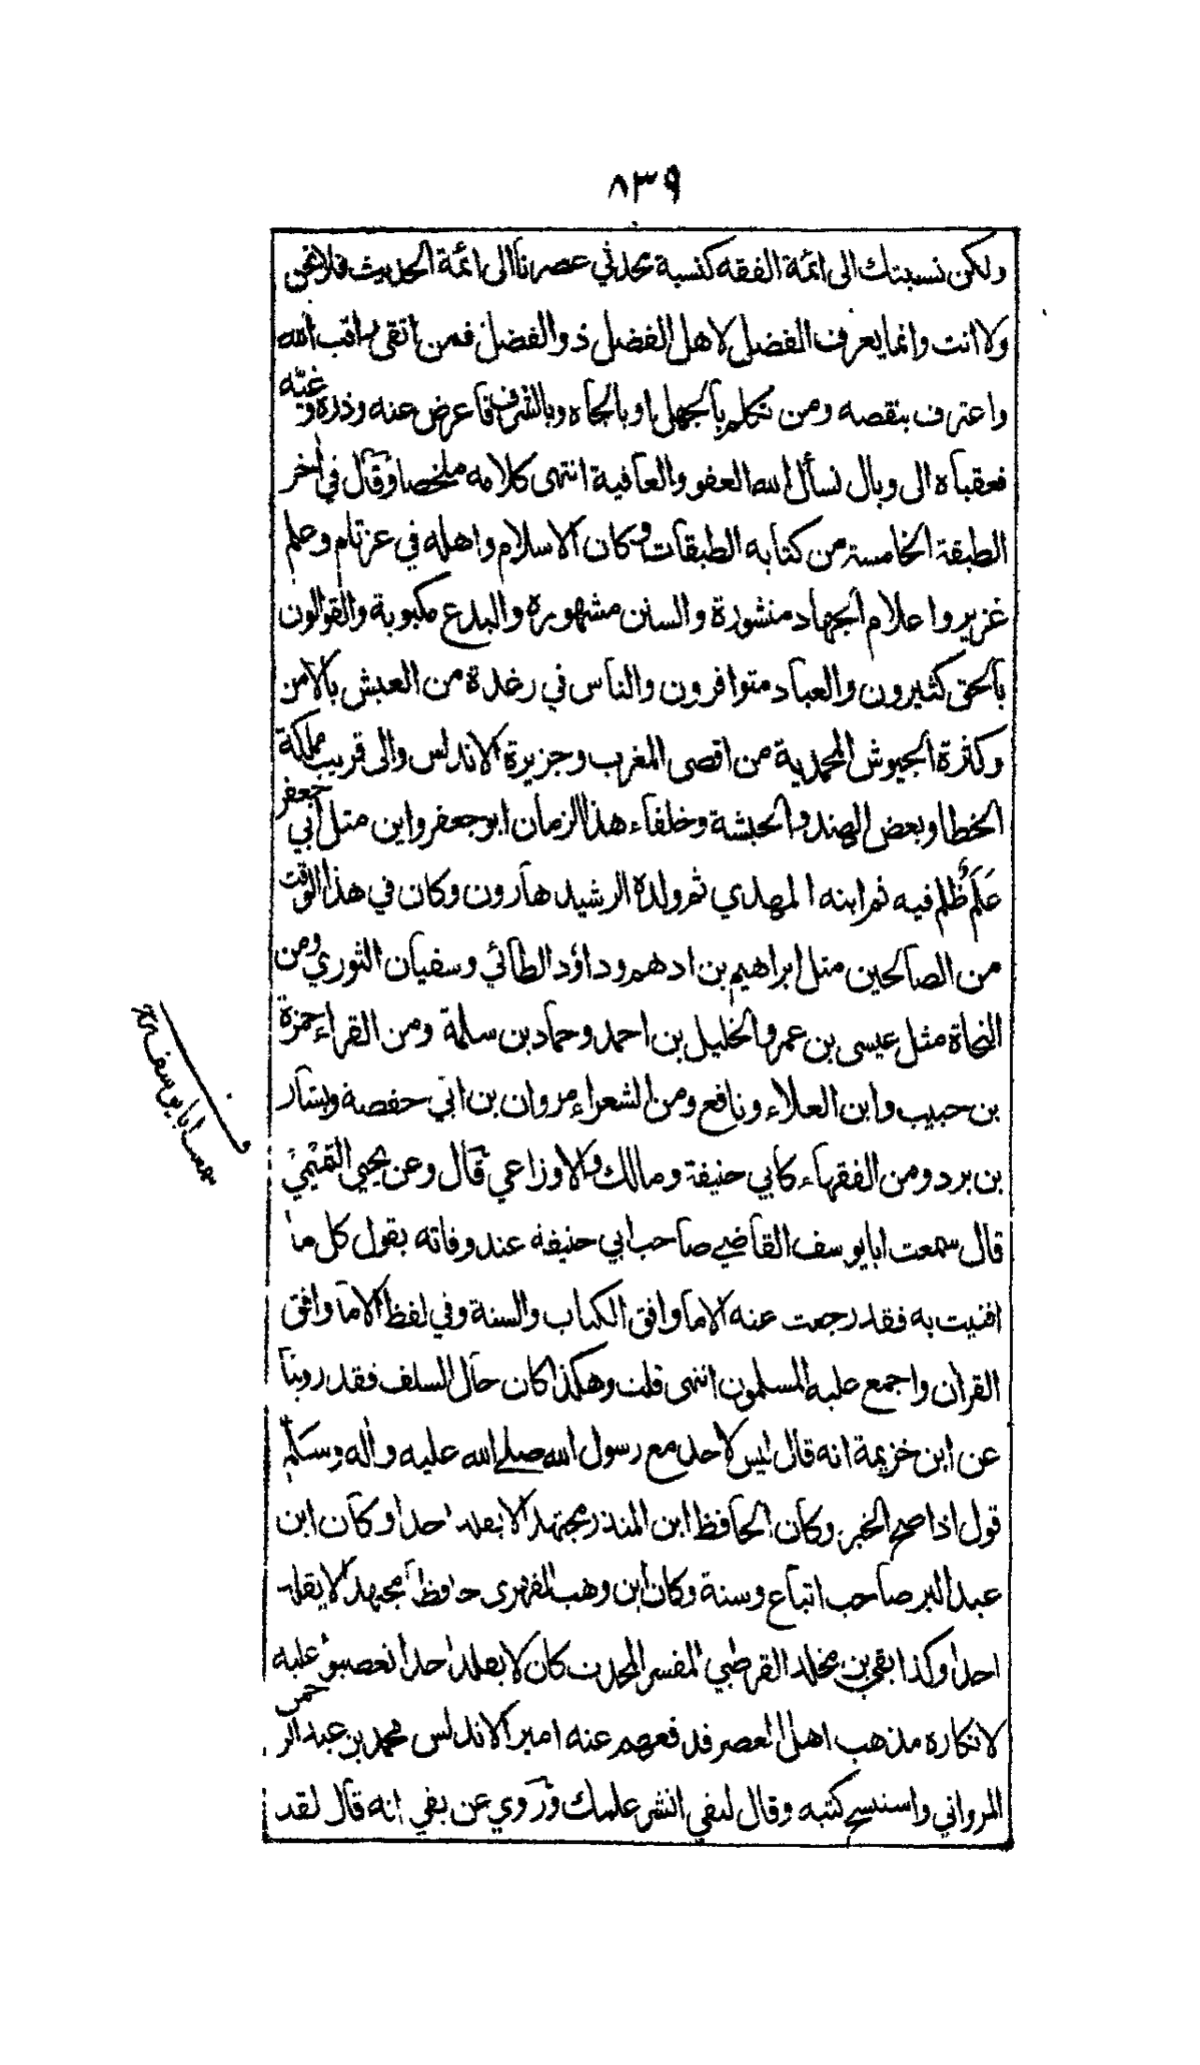 ٨٣٩
ولكن نسبتك الى ائمة الفقه كنسبة محدثي عصرنا الى ائمة الحديث فلا نحن
ولا انت وانما يعرف الفضل لاهل الفضل ذو الفضل فمن اتقى راقب الله
واعترف بنقصه ومن تكلم بالجهل او بالجاه وبالشرف فاعرض عنه وذره وغيّه
فعقباه الى وبال نسأل الله العفو والعافية انتهى كلامه ملخصا وقال في اخر
الطبقة الخامسة من كتابه الطبقات وكان الاسلام واهله في عز تام وعلم
غزير واعلام الجهاد منشورة والسنن مشهورة والبدع مكبوبة والقوالون
بالحق كثيرون والعباد متوافرون والناس في رغدة من العيش بالامن
وكثرة الجيوش المحمدية من اقصى المغرب وجزيرة الاندلس والى قريب مملكة
الخطا وبعض الهند والحبشة وخلفاء هذا الزمان ابو جعفر واين مثل أبي جعفر
عَلَم ظُلم فيه ثم ابنه المهدي ثم ولده الرشيد هارون وكان في هذا الوقت
من الصالحين مثل ابراهيم بن ادهم وداؤد الطائي وسفيان الثوري ومن
النحاة مثل عيسى بن عمر والخليل بن احمد وحماد بن سلمة ومن القراء حمزة
بن حبيب وابن العلاء ونافع ومن الشعراء مروان بن ابي حفصة وبشار
بن برد ومن الفقهاء كابي حنيفة ومالك والاوزاعي قال وعن يحيي التميمي
قال سمعت ابا يوسف القاضي صاحب ابي حنيفة عند وفاته يقول كل ما
افتيت به فقد رجعت عنه الا ما وافق الكتاب والسنة وفي لفظ الا ما وافق
القران واجمع عليه المسلمون انتهى قلت وهكذا كان حال السلف فقد روينا
عن ابن خزيمة انه قال ليس لاحد مع رسول الله صلى الله عليه واله وسلم
قول اذا صح الخبر وكان الحافظ ابن المنذر مجتهدا لا يقلد احدا وكان ابن
عبد البر صاحب اتباع وسنة وكان ابن وهب الفهرى حافظا مجتهدا لا يقلد
احدا وكذا بقي بن مخلد القرطبي المفسر المحدث كان لا يقلد احدا تعصبوا عليه
لانكاره مذهب اهل العصر فدفعهم عنه امير الاندلس محمد بن عبد الرحمن
المرواني واستنسخ كتبه وقال لبقي انشر علمك وروي عن بقي انه قال لقد
سمعت ابا يوسف